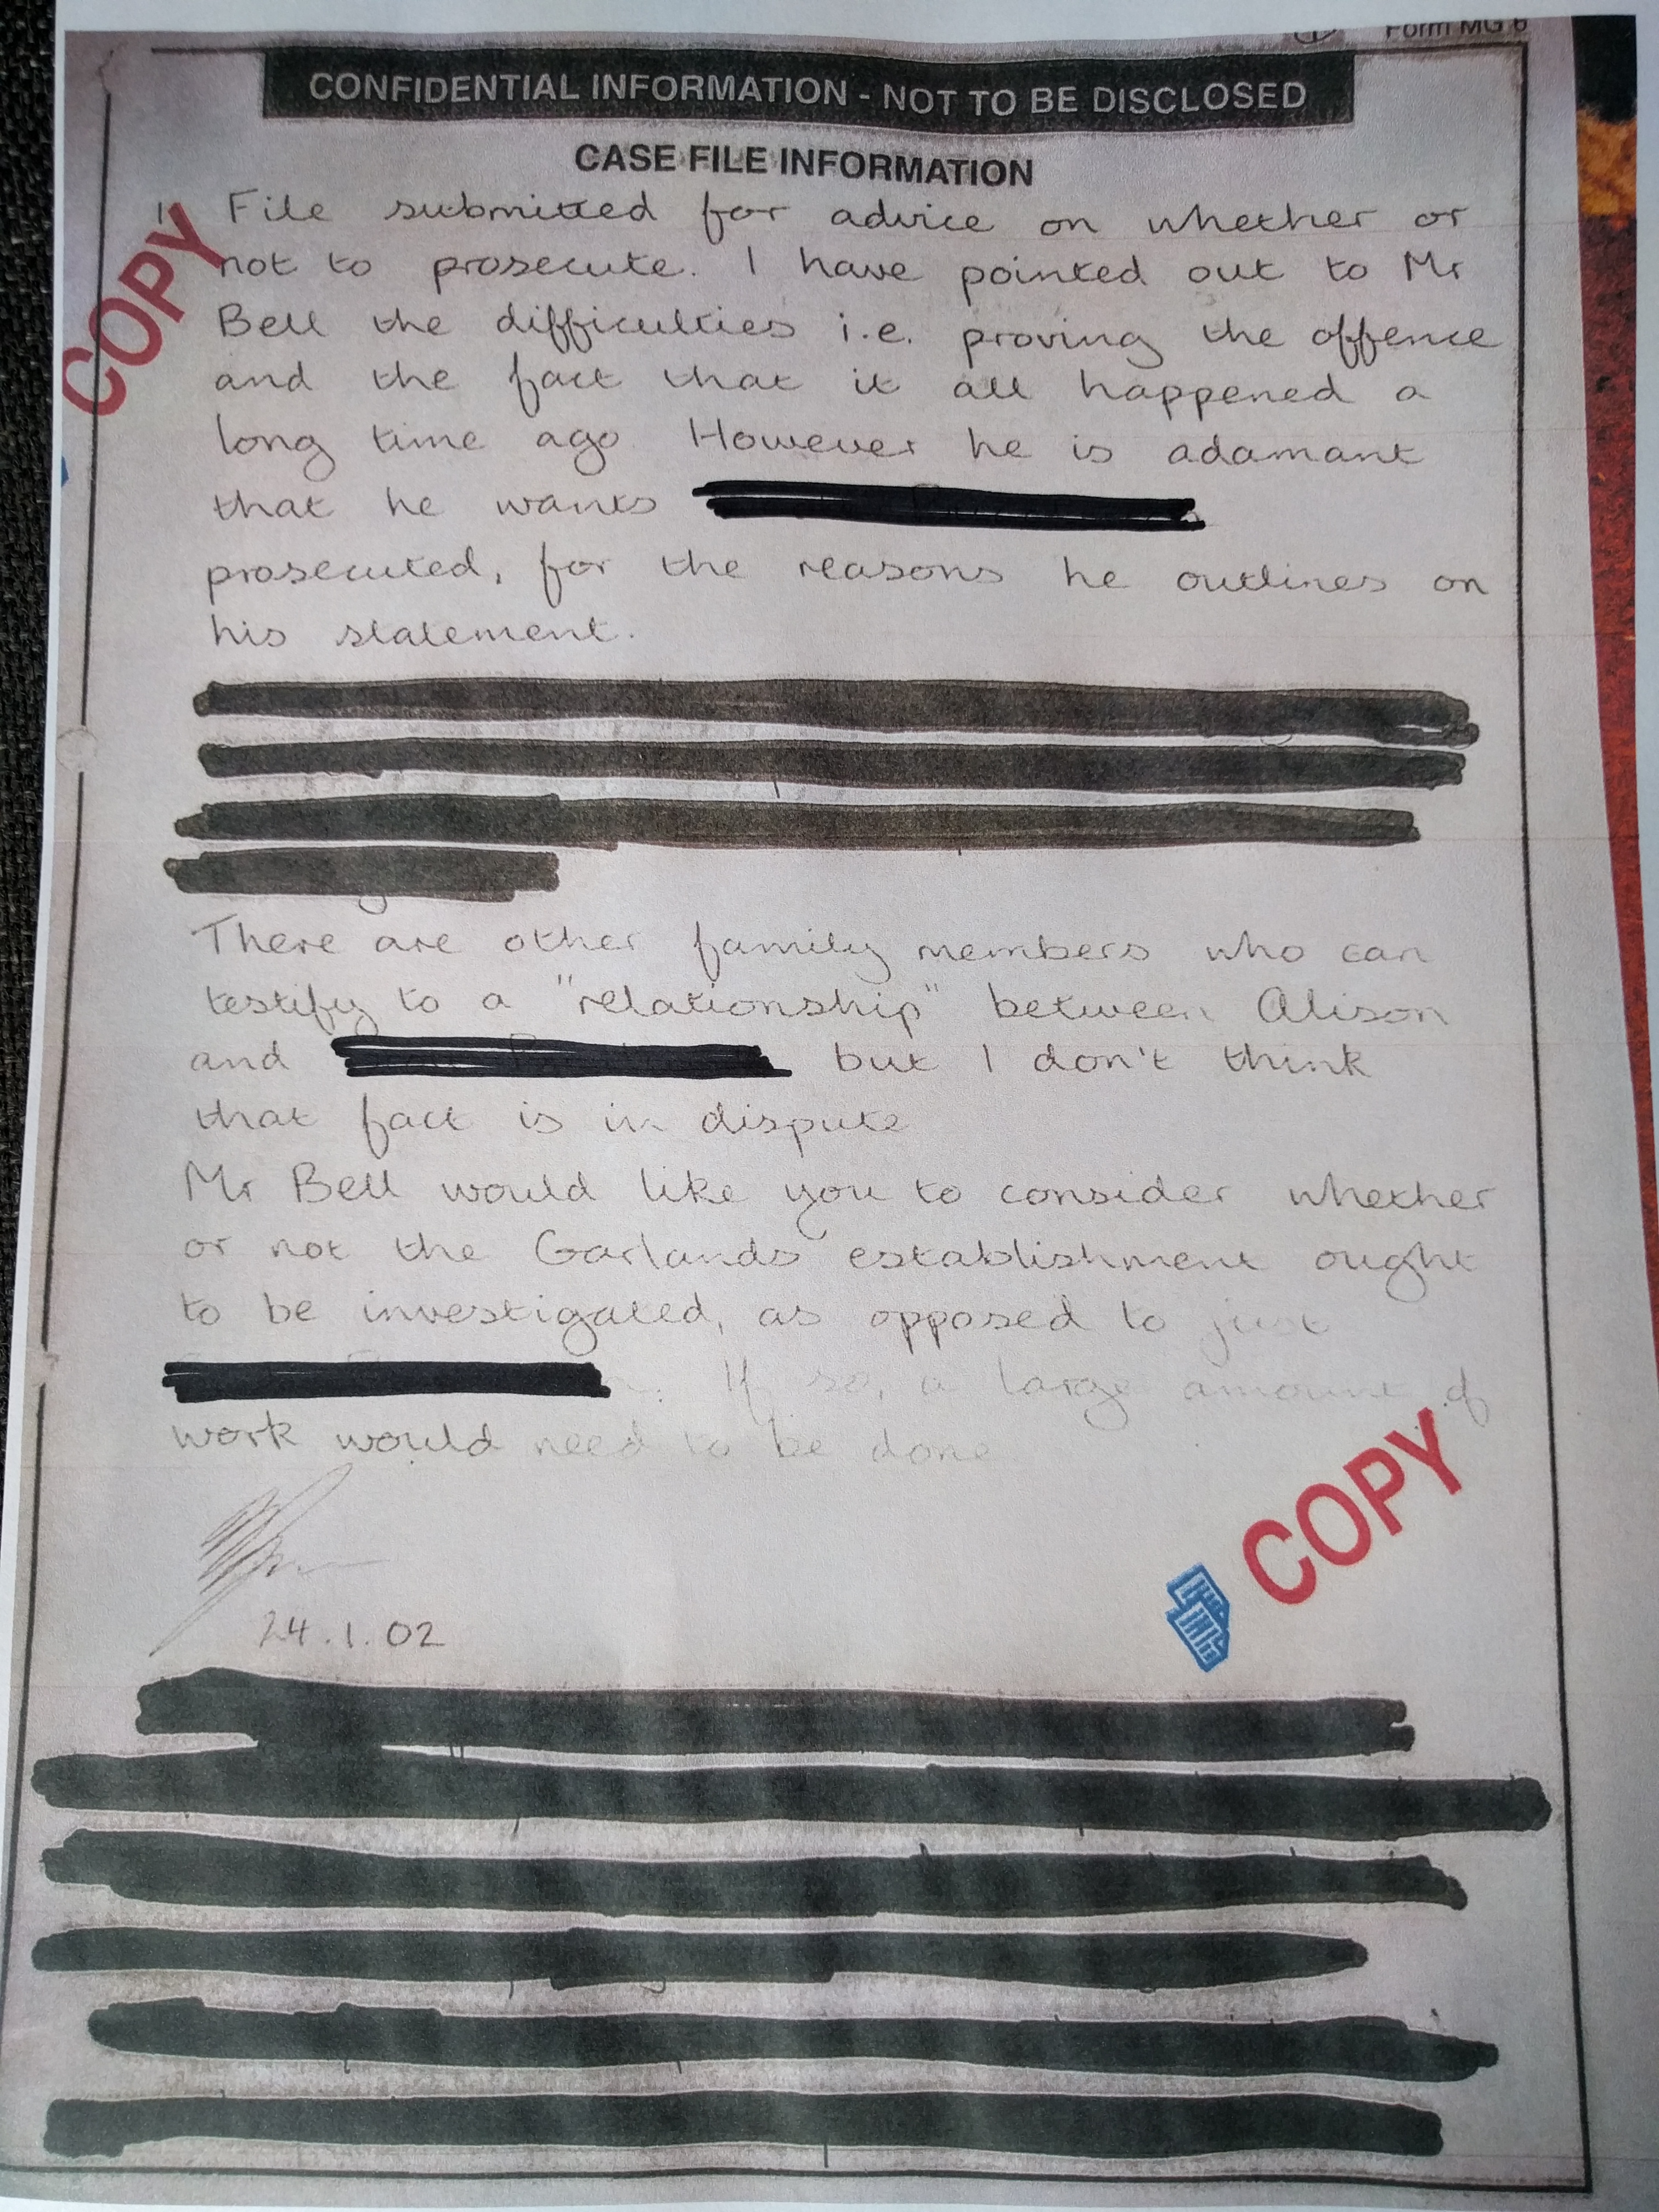 Form MG 6
CONFIDENTIAL INFORMATION - NOT TO BE DISCLOSED
CASE FILE INFORMATION
File submitted for advice on whether or
not to prosecute. I have pointed out to Mr
Bell the difficulties i.e. proving the offence
and the fact that it all happened a
long time ago. However he is adamant
that he wants
prosecuted, for the reasons he outlines on
his statement.
There are other family members who can
testify to a "relationship" between Alison
and but I don't think
that fact is in dispute
Mr Bell would like you to consider whether
or not the Garlands establishment ought
to be investigated, as opposed to just
If so, a large amount of
work would need to be done
24.1.02
COPY
COPY